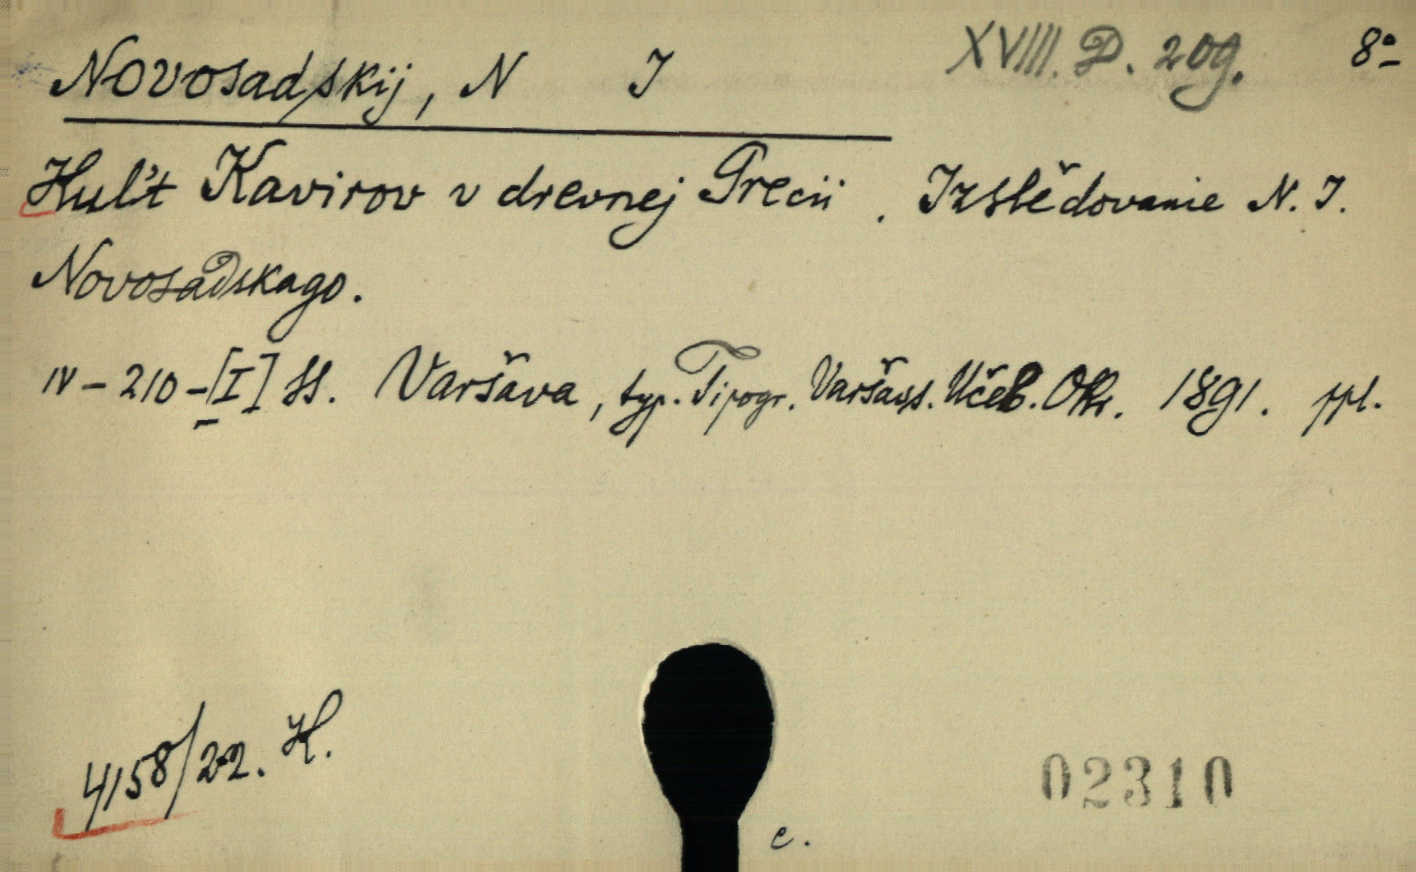 XVIII. D. 209. 8º
Novosadskij, N I
Kul't Kavirov v drevnej Grecii. Izslědovanie N. I.
Novosadskago.
IV – 210 – [I] ss. Varšava, typ. Tipogr. Varšavs. Učeb. Okr. 1891. ppl.
4158/22. K.
02310
c.